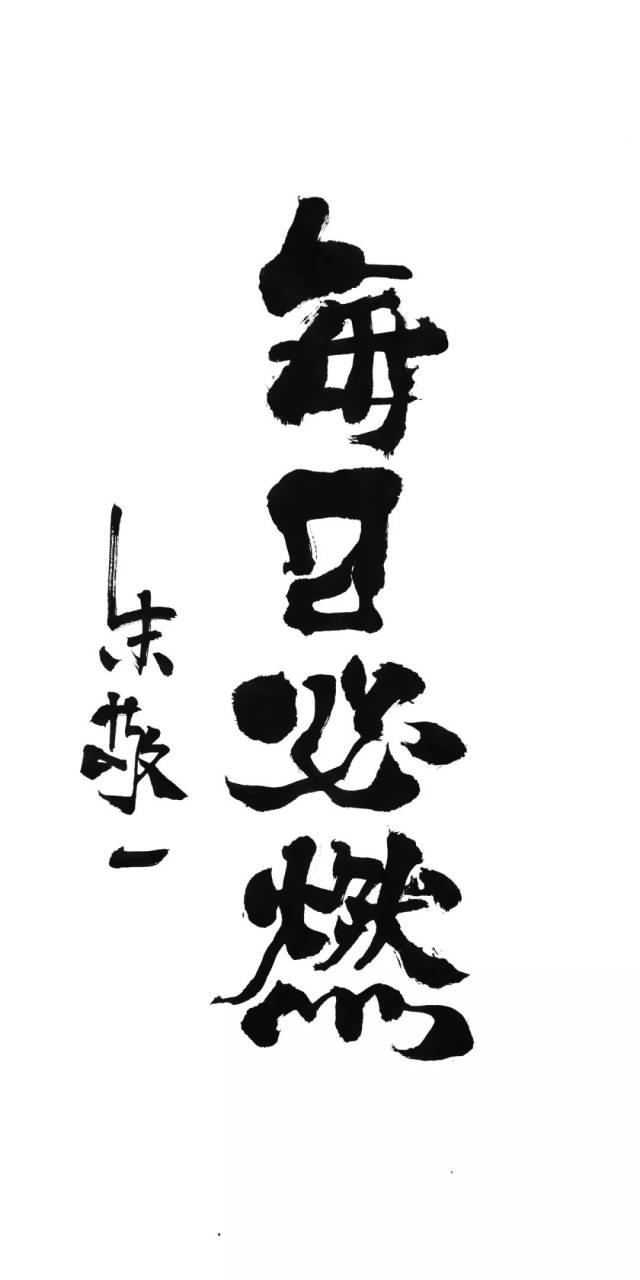 每日必燃
朱敬一